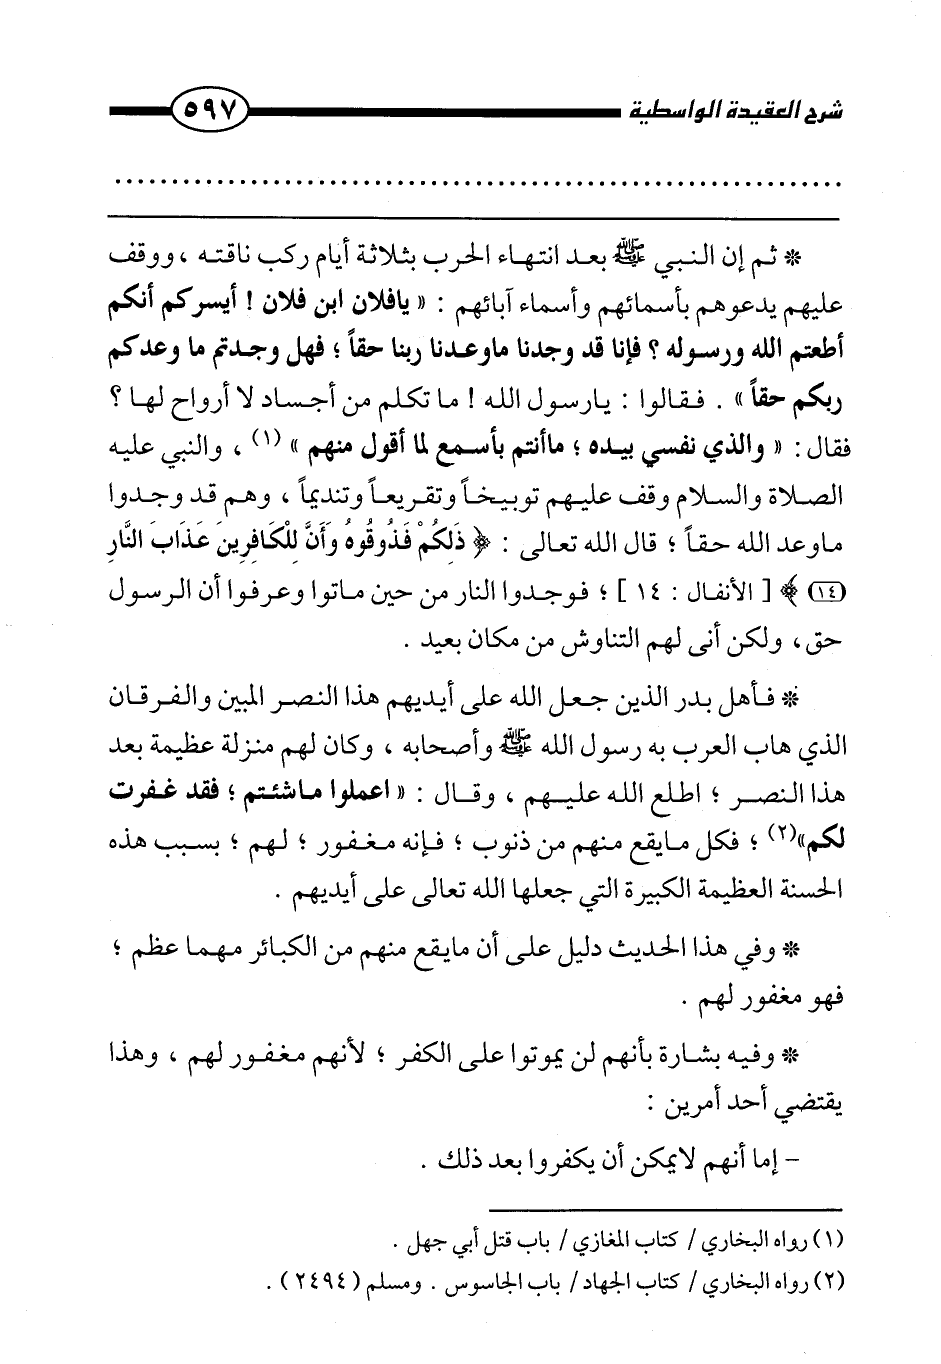 شرح العقيدة الواسطية ٥٩٧
............................................................
* ثم إن النبي ﷺ بعد انتهاء الحرب بثلاثة أيام ركب ناقته ، ووقف
عليهم يدعوهم بأسمائهم وأسماء آبائهم : « يافلان ابن فلان ! أيسركم أنكم
أطعتم الله ورسوله ؟ فإنا قد وجدنا ماوعدنا ربنا حقاً ؛ فهل وجدتم ما وعدكم
ربكم حقاً » . فقالوا : يارسول الله ! ما تكلم من أجساد لا أرواح لها ؟
فقال : « والذي نفسي بيده ؛ ماأنتم بأسمع لما أقول منهم » (١) ، والنبي عليه
الصلاة والسلام وقف عليهم توبيخاً وتقريعاً وتنديماً ، وهم قد وجدوا
ماوعد الله حقاً ؛ قال الله تعالى : ﴿ ذَلِكُمْ فَذُوقُوهُ وَأَنَّ لِلْكَافِرِينَ عَذَابَ النَّارِ
(١٤) ﴾ [ الأنفال : ١٤ ] ؛ فوجدوا النار من حين ماتوا وعرفوا أن الرسول
حق ، ولكن أنى لهم التناوش من مكان بعيد .
* فأهل بدر الذين جعل الله على أيديهم هذا النصر المبين والفرقان
الذي هاب العرب به رسول الله ﷺ وأصحابه ، وكان لهم منزلة عظيمة بعد
هذا النصر ؛ اطلع الله عليهم ، وقال : « اعملوا ماشئتم ؛ فقد غفرت
لكم»(٢) ؛ فكل مايقع منهم من ذنوب ؛ فإنه مغفور ؛ لهم ؛ بسبب هذه
الحسنة العظيمة الكبيرة التي جعلها الله تعالى على أيديهم .
* وفي هذا الحديث دليل على أن مايقع منهم من الكبائر مهما عظم ؛
فهو مغفور لهم .
* وفيه بشارة بأنهم لن يموتوا على الكفر ؛ لأنهم مغفور لهم ، وهذا
يقتضي أحد أمرين :
- إما أنهم لايمكن أن يكفروا بعد ذلك .
(١) رواه البخاري / كتاب المغازي / باب قتل أبي جهل .
(٢) رواه البخاري / كتاب الجهاد / باب الجاسوس . ومسلم (٢٤٩٤) .